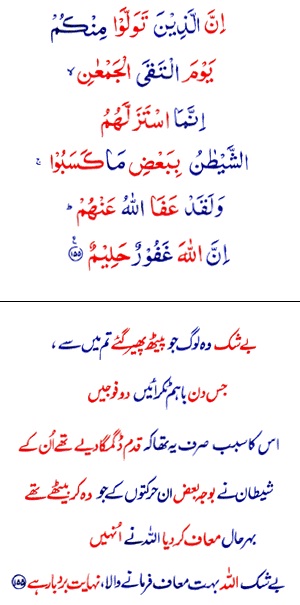 اِنَّ الَّذِيْنَ تَوَلَّوْا مِنْكُمْ
يَوْمَ الْتَقَى الْجَمْعٰنِ ۙ
اِنَّمَا اسْتَزَلَّهُمُ
الشَّيْطٰنُ بِبَعْضِ مَا كَسَبُوْا ۚ
وَلَقَدْ عَفَا اللّٰهُ عَنْهُمْ ؕ
اِنَّ اللّٰهَ غَفُوْرٌ حَلِيْمٌ ﴿۱۵۵﴾
بے شک وہ لوگ جو پیٹھ پھیر گئے تم میں سے ،
جس دن باہم ٹکرائیں دو فوجیں
اس کا سبب صرف یہ تھا کہ قدم ڈگمگا دیے تھے اُن کے
شیطان نے بوجہ بعض ان حرکتوں کے جو وہ کر بیٹھے تھے
بہرحال معاف کر دیا اللہ نے اُنہیں
بے شک اللہ بہت معاف فرمانے والا، نہایت بردبار ہے ﴿۱۵۵﴾